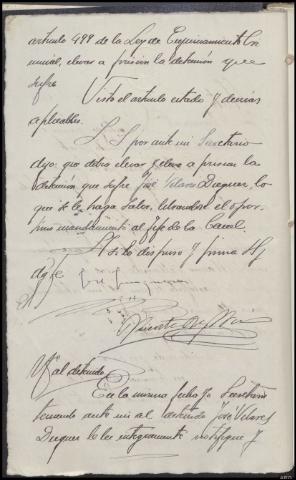 artículo 499 de la Ley de Enjuiciamiento Cri
minal, elevar a prisión la detención que
sufre
Visto el artículo citado y demás
aplicables.
S. S. por ante mi Secretario
dijo: que debía elevar y eleva a prisión la
detención que sufre José Velares, lo
que se le haga saber, librandose el opor
tuno mandamiento al Jefe de la Carcel.
Así lo dispuso y firma S. S.
doy fe
Vicente
al detenido
En la misma fecha yo Secretario
teniendo ante mi al detenido José Velares
le lei integramente notifique y